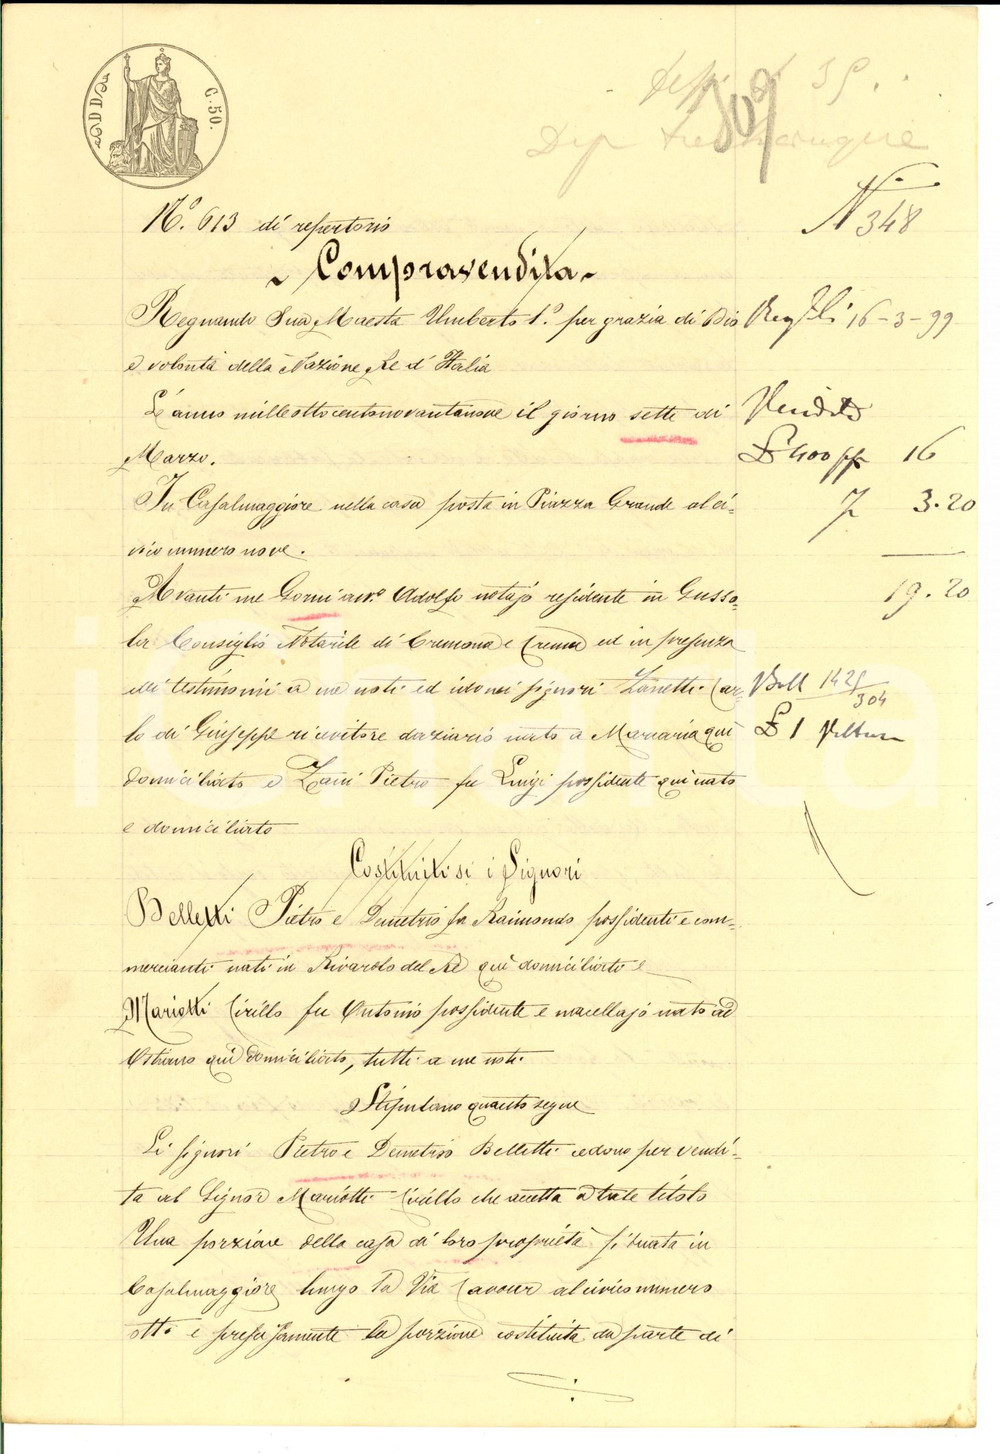 DD
C. 50.
309
N 348
N.º 613 di repertorio
Compravendita
Regnando Sua Maestà Umberto 1.º per grazia di Dio
e volontà della Nazione Re d'Italia
L'anno mille ottocentonovantanove il giorno sette di
Marzo.
In Casalmaggiore nella casa posta in Piazza Grande al ci-
vico numero nove.
Avanti me Gorni avv.º Adolfo notajo residente in Gusso-
la Consiglio Notarile di Cremona e Crema ed in presenza
dei testimoni a me noti ed idonei signori Zanetti Car-
lo di Giuseppe ricevitore daziario nato a Marcaria qui
domiciliato e Zani Pietro fu Luigi possidente qui nato
e domiciliato
Costituiti si i Signori
Belletti Pietro e Demetrio fu Raimondo possidenti e com-
mercianti nati in Rivarolo del Re qui domiciliati e
Mariotti Cirillo fu Antonio possidente e macellajo nato ad
Ostiano qui domiciliato, tutti a me noti.
Stipulano quanto segue
Li signori Pietro e Demetrio Belletti cedono per vendi-
ta al Signor Mariotti Cirillo che accetta a tale titolo
Una porzione della casa di loro proprietà situata in
Casalmaggiore lungo la Via Cavour al civico numero
otto e precisamente la porzione costituita da parte di
16-3-99
Vendita
£ 400 pp 16
3.20
19.20
Boll 1425/304
£ 1